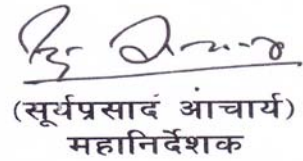 (सूर्यप्रसाद आचार्य)
महानिर्देशक